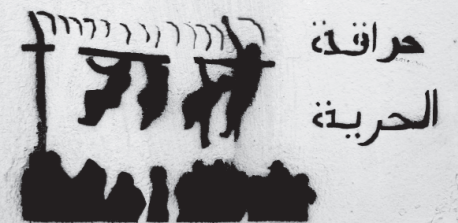 حراقة
الحرية